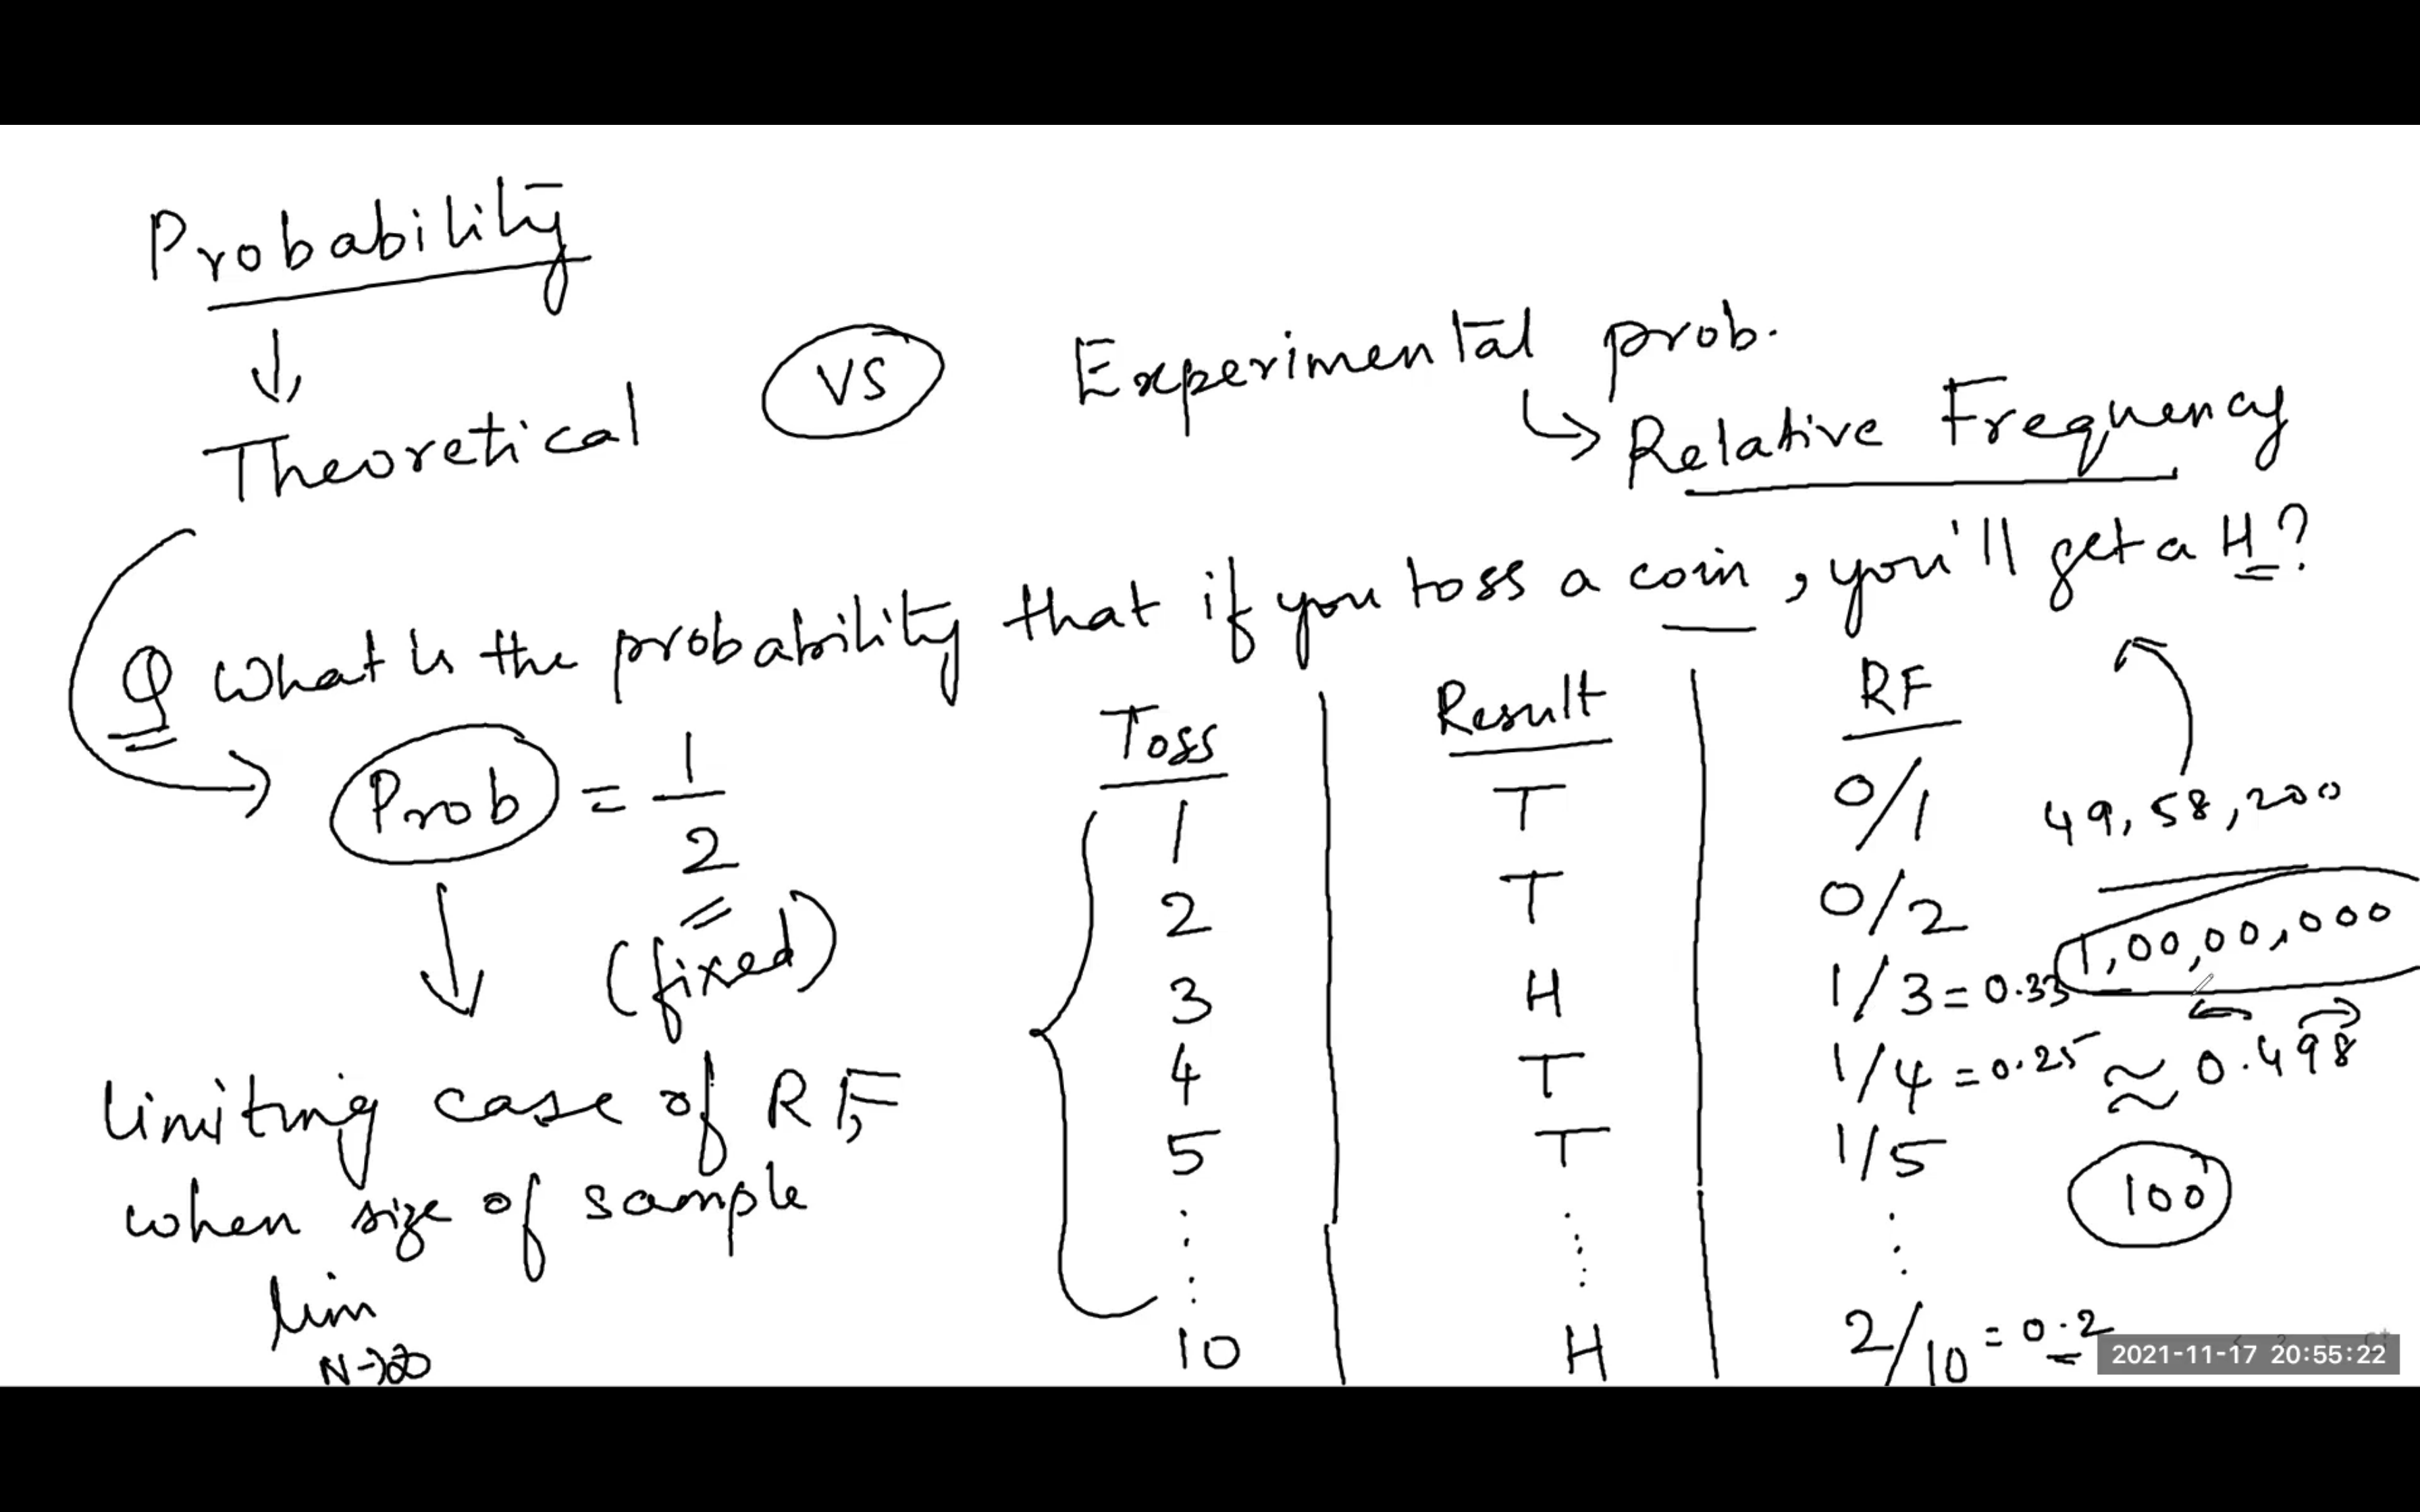 Probability
Theoretical
VS
Experimental prob.
Relative Frequency
Q What is the probability that if you toss a coin, you'll get a H?
Prob = 1/2
(fixed)
limiting case of RF,
when size of sample
lim
N→∞
Toss | Result | RF
1 | T | 0/1
2 | T | 0/2
3 | H | 1/3 = 0.33
4 | T | 1/4 = 0.25
5 | T | 1/5
10 | H | 2/10 = 0.2
49,58,200
1,00,00,000
≈ 0.498
100
2021-11-17 20:55:22